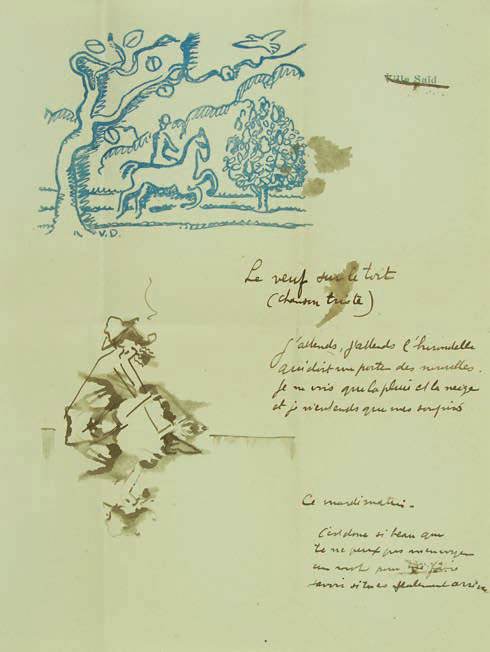 Villa Saïd
V.D.
Le veuf sur le toit
(chanson triste)
J'attends, j'attends l'hirondelle
qui doit me porter des nouvelles.
Je ne vois que la pluie et la neige
et je n'entends que mes soupirs
Ce mardi matin.
C'est donc si beau que
te ne peux pas
un mot pour faire
savoir si tu es